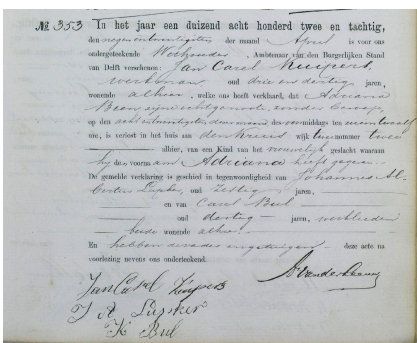 № 353 In het jaar een duizend acht honderd twee en tachtig,
den negenentwintigsten der maand April is voor ons
ondergeteekende Wethouder, Ambtenaar van den Burgerlijken Stand
van Delft verschenen: Jan Carel Kuipers
werkman oud drie en dertig jaren,
wonende alhier, welke ons heeft verklaard, dat Adriana
Been zijne echtgenoote, zonder beroep,
op den acht en twintigsten dezer maand des voormiddags ten
ure, is verlost in het huis aan den wijk nummer twee
alhier, van een Kind van het vrouwelijk geslacht waaraan
hij de voornaam Adriana heeft gegeven.
De gemelde verklaring is geschied in tegenwoordigheid van Johannes Al-
bertus Lupker, oud zestig jaren,
en van Carel Bul
oud dertig jaren, werklieden
beide wonende alhier.
En hebben de vader en getuigen deze acte na
voorlezing nevens ons onderteekend.
Jan Carel Kuipers
J A Lupker
K Bul